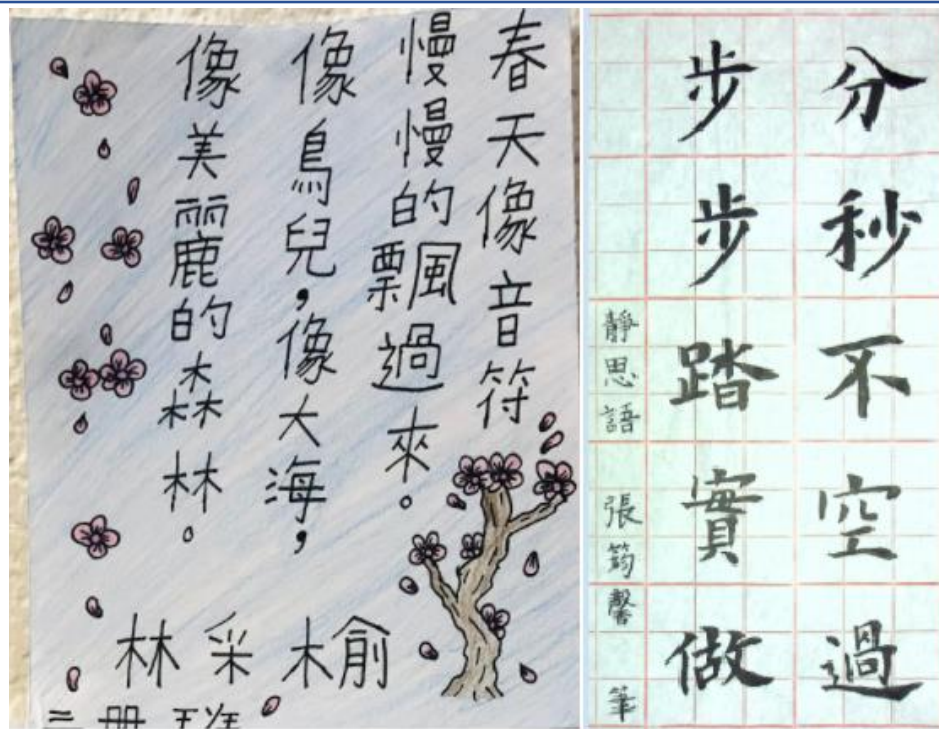 春天像音符
慢慢的飄過來。
像鳥兒，像大海，
像美麗的森林。
林采榆
分秒不空過
步步踏實做
靜思語 張筠馨 筆